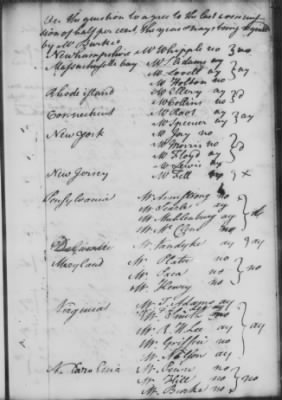 On the question to agree to the last
tion of half per cent. the yeas & nays being required
by Mr Burke
New hampshire Mr Whipple no } no
Massachusetts bay Mr S Adams ay
Mr Lovell ay } ay
Mr Holten ay
Rhode island Mr Ellery ay } d
Mr Collins no
Connecticut Mr Root ay } ay
Mr Spencer ay
New York Mr Jay no
Mr Morris no } d
Mr Floyd ay
Mr Lewis ay
New Jersey Mr Fell ay } x
Pensylvania Mr Armstrong no
Mr Searle ay
Mr Muhlenburg ay
Mr McLene no
Delaware Mr Vandyke ay } ay
Maryland Mr Plater no
Mr no } no
Mr Henry no
Virginia Mr T. Adams ay
Mr Smith no
Mr R H Lee ay } ay
Mr Griffin no
Mr Nelson ay
N. Carolina Mr Penn no
Mr Hill no } no
Mr Burke no